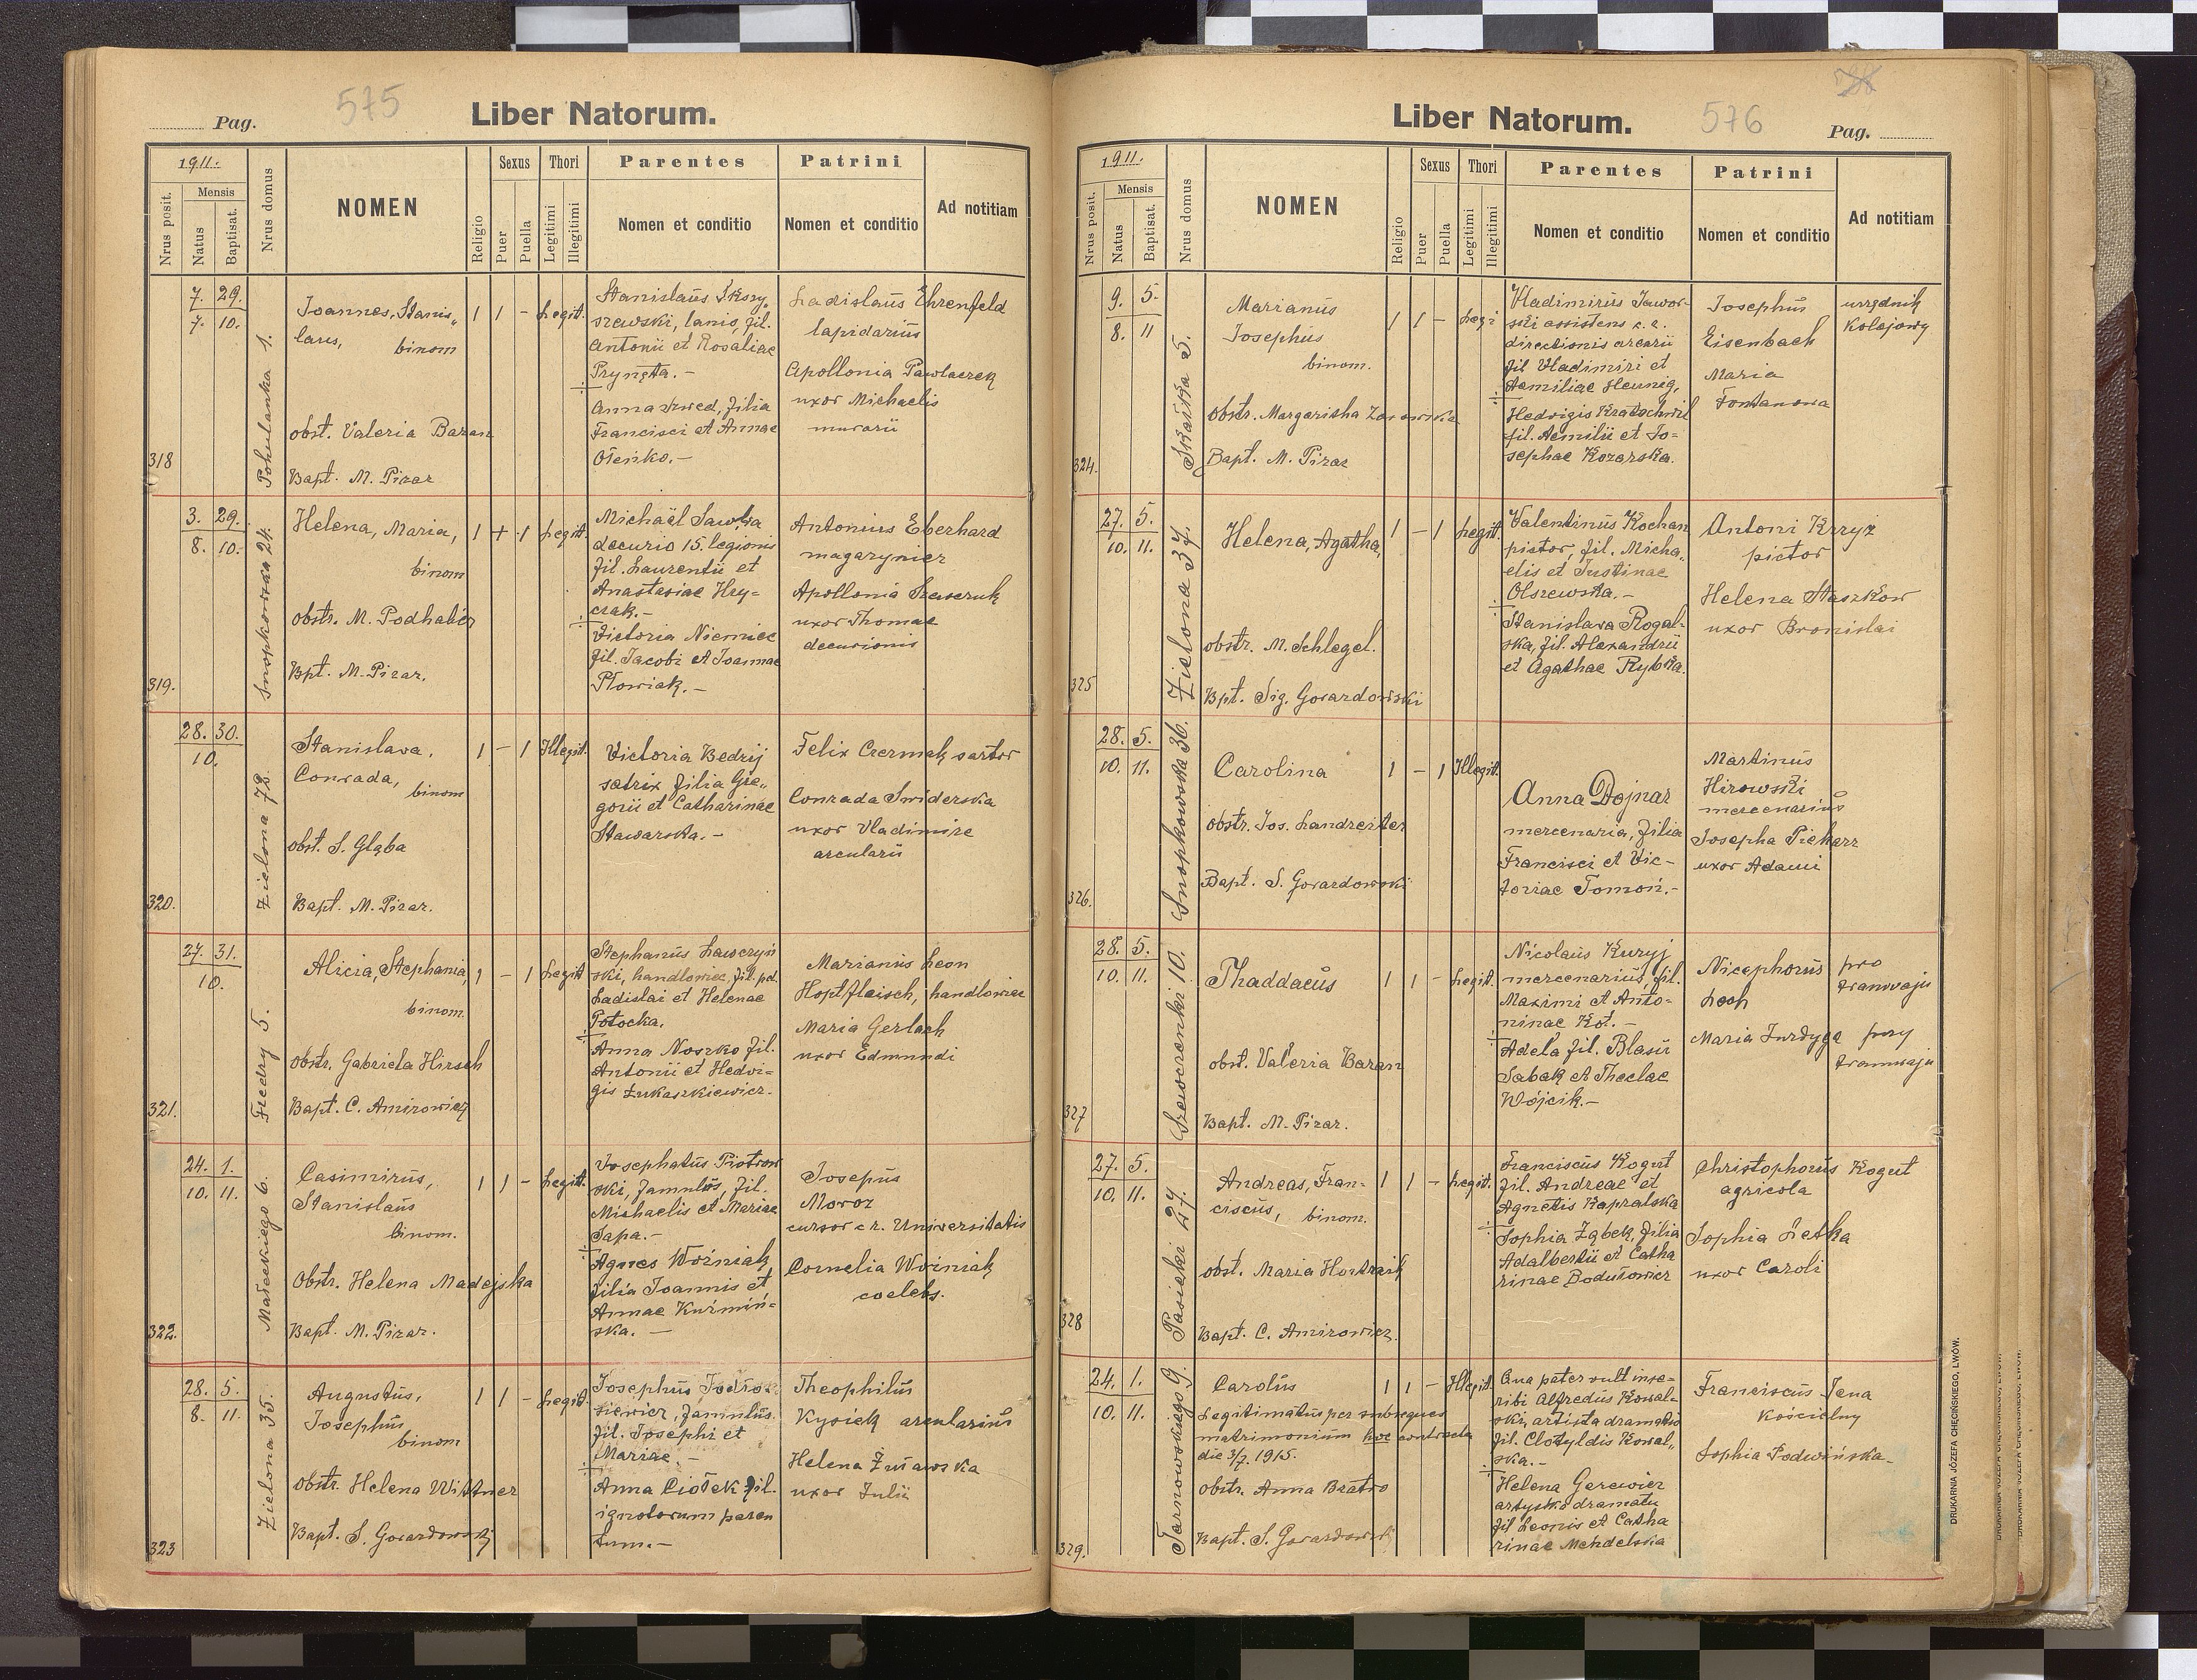 Pag.
575
Liber Natorum.
1911.
Nrus posit.
Mensis
Natus
Baptisat.
Nrus domus
NOMEN
Religio
Sexus
Puer
Puella
Thori
Legitimi
Illegitimi
Parentes
Nomen et conditio
Patrini
Nomen et conditio
Ad notitiam
318
7. 29.
7. 10.
Pohulanka 1.
Joannes, Stanis„
laus, binom
obst. Valeria Baran
Bapt. M. Pizar
1 1 - Legit.
Stanislaus
szewski, lanio, fil.
Antonii et Rosaliae
Prynęta.-
Anna Szwed, filia
Francisci et Annae
Oleńko.-
Ladislaus Ehrenfeld
lapidarius
Apollonia Pawlaczek
uxor Michaelis
murarii
319.
3. 29.
8. 10.
Snopkowska 24.
Helena, Maria,
binom
obstr. M. Podhalicz
Bpt. M. Pizar.
1 + 1 Legit.
Michaël Sawka
decurio 15. legionis
fil. Laurentii et
Anastasiae Hry-
czak.-
Victoria Niemiec
fil. Jacobi et Joannae
Płowiak.-
Antonius Eberhard
magazynier
Apollonia Szewczuk
uxor Thomae
decurionis
320.
28. 30.
10.
Zielona 78.
Stanislava,
Conrada,
binom
obst. S. Głąba
Bapt. M. Pizar.
1 - 1 Illegit.
Victoria Bedrij
satrix filia Gre„
gorii et Catharinae
Stawarska.-
Felix Czermak sartor
Conrada Swiderska
uxor Vladimire
arcularii
321.
27. 31.
10.
Fredry 5.
Alicia, Stephania,
binom.
Obstr. Gabriela Hirsch
Bapt. C. Amirowicz
1 - 1 Legit
Stephanus Lawczyń
ski, handlowiec, fil. pd.
Ladislai et Helenae
Potocka.
Anna Noszko fil.
Antonii et Hedvi-
gis Łukaszkiewicz.
Marianus Leon
Hoptfleisch, handlowiec
Maria Gerlach
uxor Edmundi
322.
24. 1.
10. 11.
Małeckiego 6.
Casimirus,
Stanislaus
binom.
Obstr. Helena Madejska
Bapt. M. Pizar.
1 1 - Legit.
Josephatus Piotrow
ski, famulus, fil.
Michaelis et Mariae
Sapa.-
Agnes Woźniak
filia Joannis et
Annae Kuźmiń-
ska.-
Josepus
Moroz
cursor c r. Universitatis
Cornelia Woźniak
coelebs.
323
28. 5.
8. 11.
Zielona 35.
Augustus,
Josephus
binom
obstr. Helena Wittner
Bapt. S. Gorazdowski
1 1 - Legit
Josephus
siewicz, famulus.
fil. Josephi et
Mariae.-
Anna Ciołek fil.
ignotorum paren
tum.-
Theophilus
Kysiek arcularius
Helena Żuławska
uxor Julii
Liber Natorum.
576
Pag.
1911.
Nrus posit.
Mensis
Natus
Baptisat.
Nrus domus
NOMEN
Religio
Sexus
Puer
Puella
Thori
Legitimi
Illegitimi
Parentes
Nomen et conditio
Patrini
Nomen et conditio
Ad notitiam
324.
9. 5.
8. 11
Skałka 5.
Marianus
Josephus
binom.
Obstr. Margaritha
Bapt. M. Pizar
1 1 - Legi
Vladimirus Jawor-
ski assistens c. r.
directionis aerarii
fil Vladimiri et
Aemiliae Hennig,
Hedvigis Kratschwil
fil. Aemilii et Jo-
sephae Kozarska.
Josephus
Eisenbach
Maria
Fontanowa
urzędnik
Kolejowy
325
27. 5.
10. 11.
Zielona 37.
Helena, Agatha,
obstr. M. Schlegel.
Bpt. Sig. Gorazdowski
1 - 1 Legit.
Valentinus Kochan
pistor, fil. Micha„
elis et Justinae
Olszewska.-
Stanislava Rogal-
ska, fil. Alexandrii
et Agathae Rybka.
Antoni Krzyż
pictor
Helena Staszkow
uxor Bronislai
326.
28. 5.
10. 11.
Snopkowska 36.
Carolina
obstr. Jos. Landreiter
Bapt. S. Gorazdowski
1 - 1 Illegit.
Anna Dojnar
mercenaria, filia
Francisci et Vic-
toriae Tomoń.-
Martinus
Hirowski
mercenarius
Josepha Piekarz
uxor Adami
327
28. 5.
10. 11.
Szewczenki 10.
Thaddaeus
obst. Valeria Baran
Bapt. M. Pizar.
1 1 - Legit.
Nicolaus Kuryj
mercenarius, fil.
Maximi et Anto-
ninae Kot.-
Adela fil. Blasii
Sabak et Theclae
Wójcik.-
Nicephorus
Loch
Maria Furdyga
pro
tramwaju
przy
tramwaju
328
27. 5.
10. 11.
Pasieki 27.
Andreas, Fran-
ciscus, binom.
obst. Maria
Bapt. C. Amirowicz.
1 1 - Legit.
Franciscus Kogut
fil. Andreae et
Agnetis Kapralska
Sophia Ząbek, filia
Adalbertii et Catha
rinae
Christophorus Kogut
agricola
Sophia Letka
uxor Caroli
329.
24. 1.
10. 11.
Tarnowskiego 9.
Carolus
Legitimatus per subseques
matrimonium hoc contracta
die 3/7. 1915.
obstr. Anna Bratro
Bapt. S. Gorazdowski
1 1 - Illegit.
Qua pater vult inse-
ribi Alfredus Kowal-
ski, artista dramatic
fil. Clotyldis Kowal„
ska.-
Helena Gerewicz
artystka dramatu
fil Leonis et Catha
rinae Mendelska
Franciscus Jana
Kościelny
Sophia Podwińska-
DRUKARNIA JÓZEFA CHĘCIŃSKIEGO, LWÓW.
DRUKARNIA JÓZEFA CHĘCIŃSKIEGO, LWÓW.
DRUKARNIA JÓZEFA CHĘCIŃSKIEGO, LWÓW.